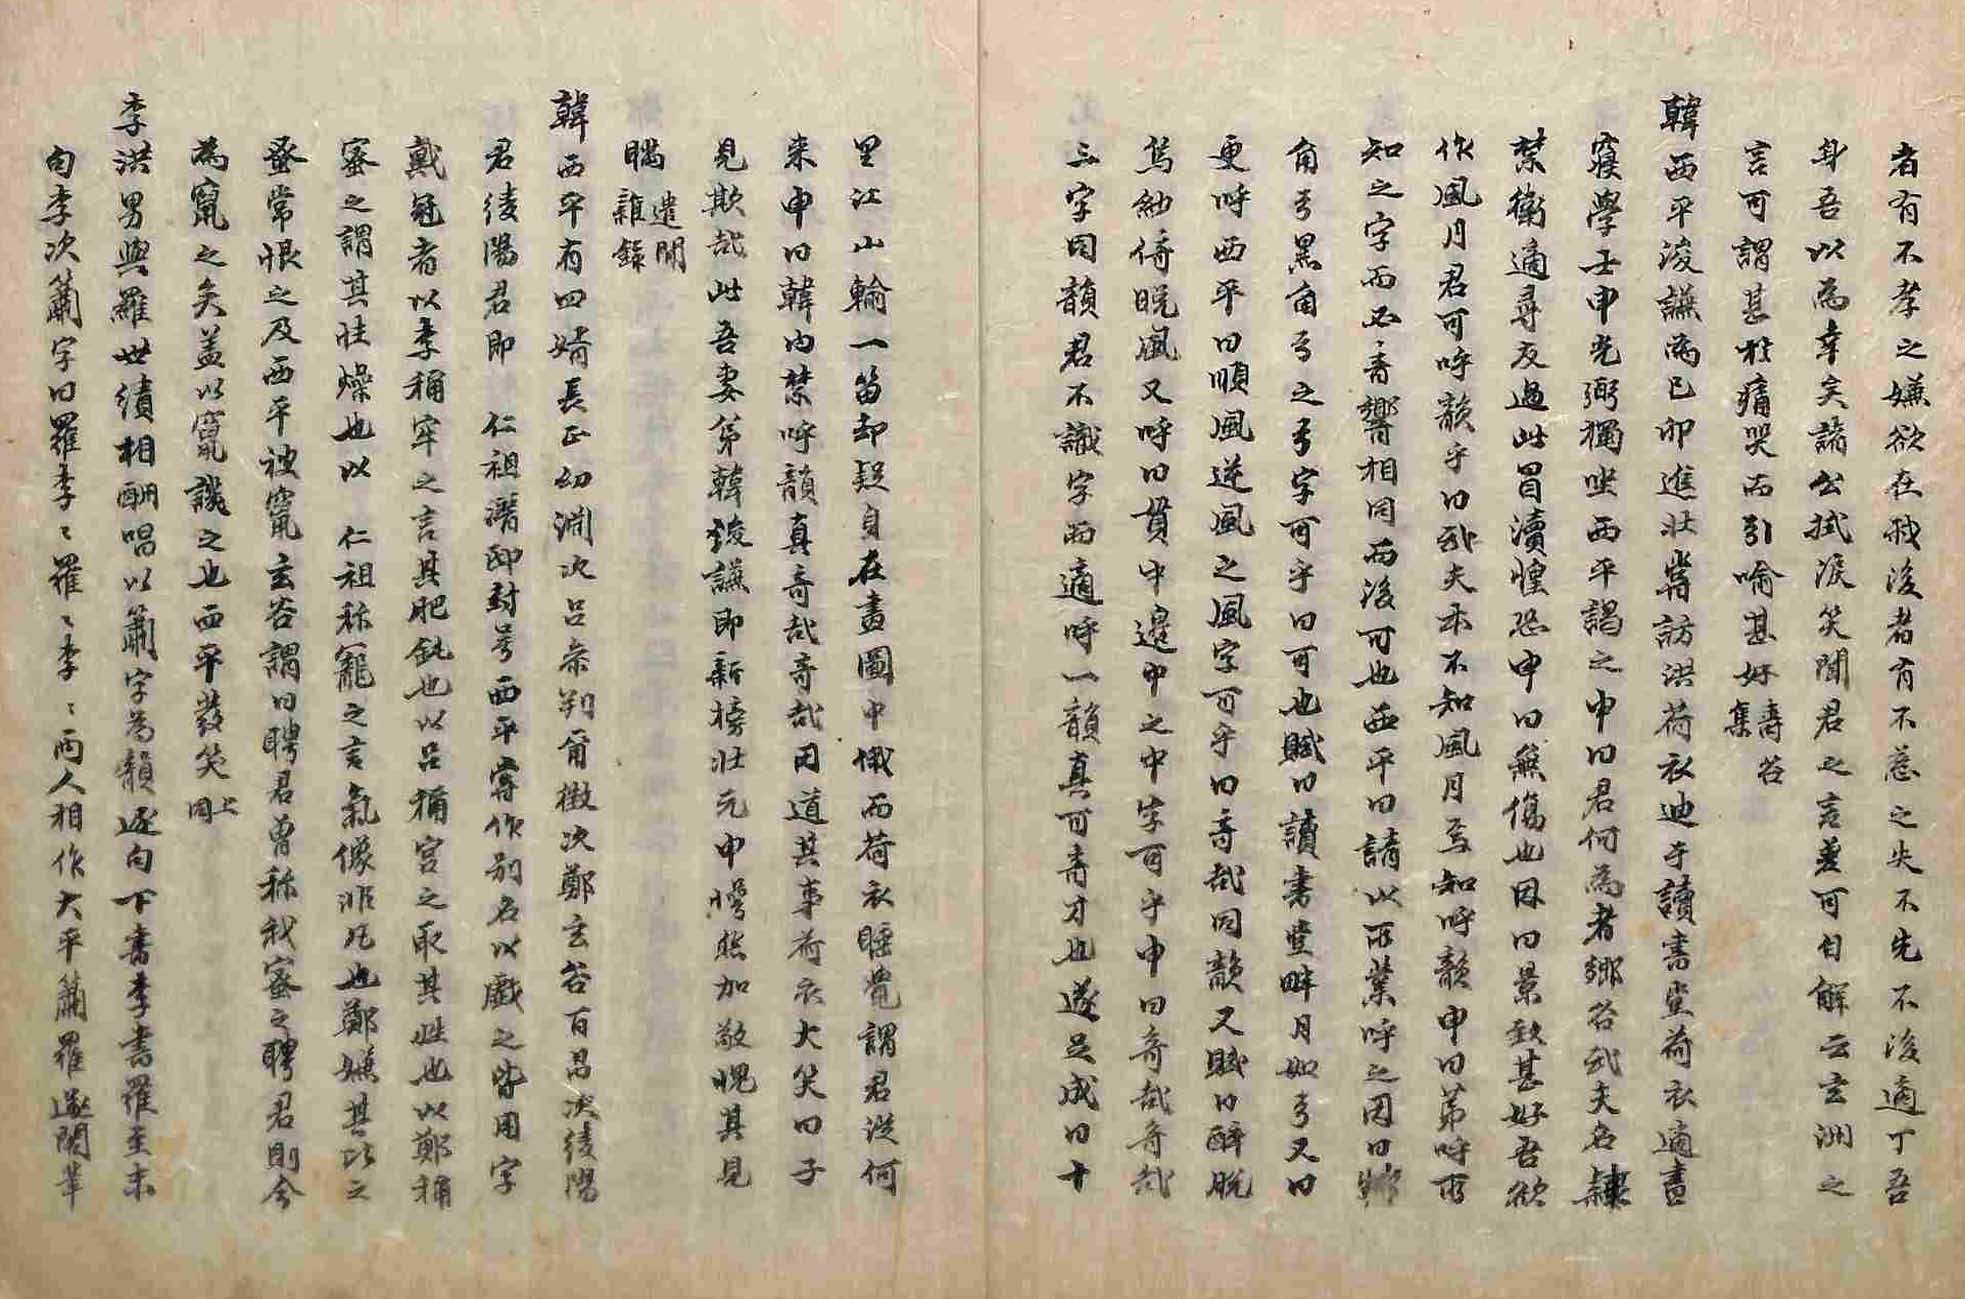 者有不孝之嫌欲在我後者有不慈之失不先不後適丁吾
身吾以為幸矣諸公拭淚笑聞君之言差可自解云玄洲之
言可謂甚於痛哭而引喻甚好壽谷集
韓西平浚謙為己卯進壯嘗訪洪荷衣迪于讀書堂荷衣適晝
寢學士申光弼獨坐西平謁之申曰君何為者鄉谷武夫名隸
禁衛適尋友過此冒瀆惶恐申曰無傷也因曰景致甚好吾欲
作風月君可呼韻乎曰武夫本不知風月焉知呼韻申曰第呼所
知之字而必音響相同而後可也西平曰請以所業呼之因曰鄉
角弓黑角弓之弓字可乎曰可也賦曰讀書堂畔月如弓又曰
更呼西平曰順風逆風之風字可乎曰奇哉同韻又賦曰醉脫
烏紗倚晚風又呼曰貫中邊中之中字可乎申曰奇哉奇哉
三字同韻君不識字而適呼一韻真可奇才也遂足成曰十
里江山輸一笛却疑身在畫圖中俄而荷衣睡覺謂君從何
來申曰韓內禁呼韻真奇哉奇哉因道其事荷衣大笑曰子
見欺哉此吾妻弟韓浚謙即新榜壯元申愕然加敬愧其見
瞞遣閒雜錄
韓西平有四婿長正幼淵次呂參判爾徵次鄭玄谷百昌次綾陽
君綾陽君即 仁祖潛邸封號西平嘗作別名以戲之皆用字
戴冠者以李稱牢之言其肥鈍也以呂稱宮之取其姓也以鄭稱
蜜之謂其性燥也以 仁祖稱寵之言氣像非凡也鄭嫌其以之
蜜常恨之及西平被竄玄谷謂曰聘君曾稱我蜜之聘君則今
為竄之矣盖以竄譏之也西平發笑上同
李洪男與羅世績相酬唱以簫字為韻逐句下書李書羅至末
句李次簫字曰羅李〻羅〻李〻兩人相作大平簫羅遂閣筆